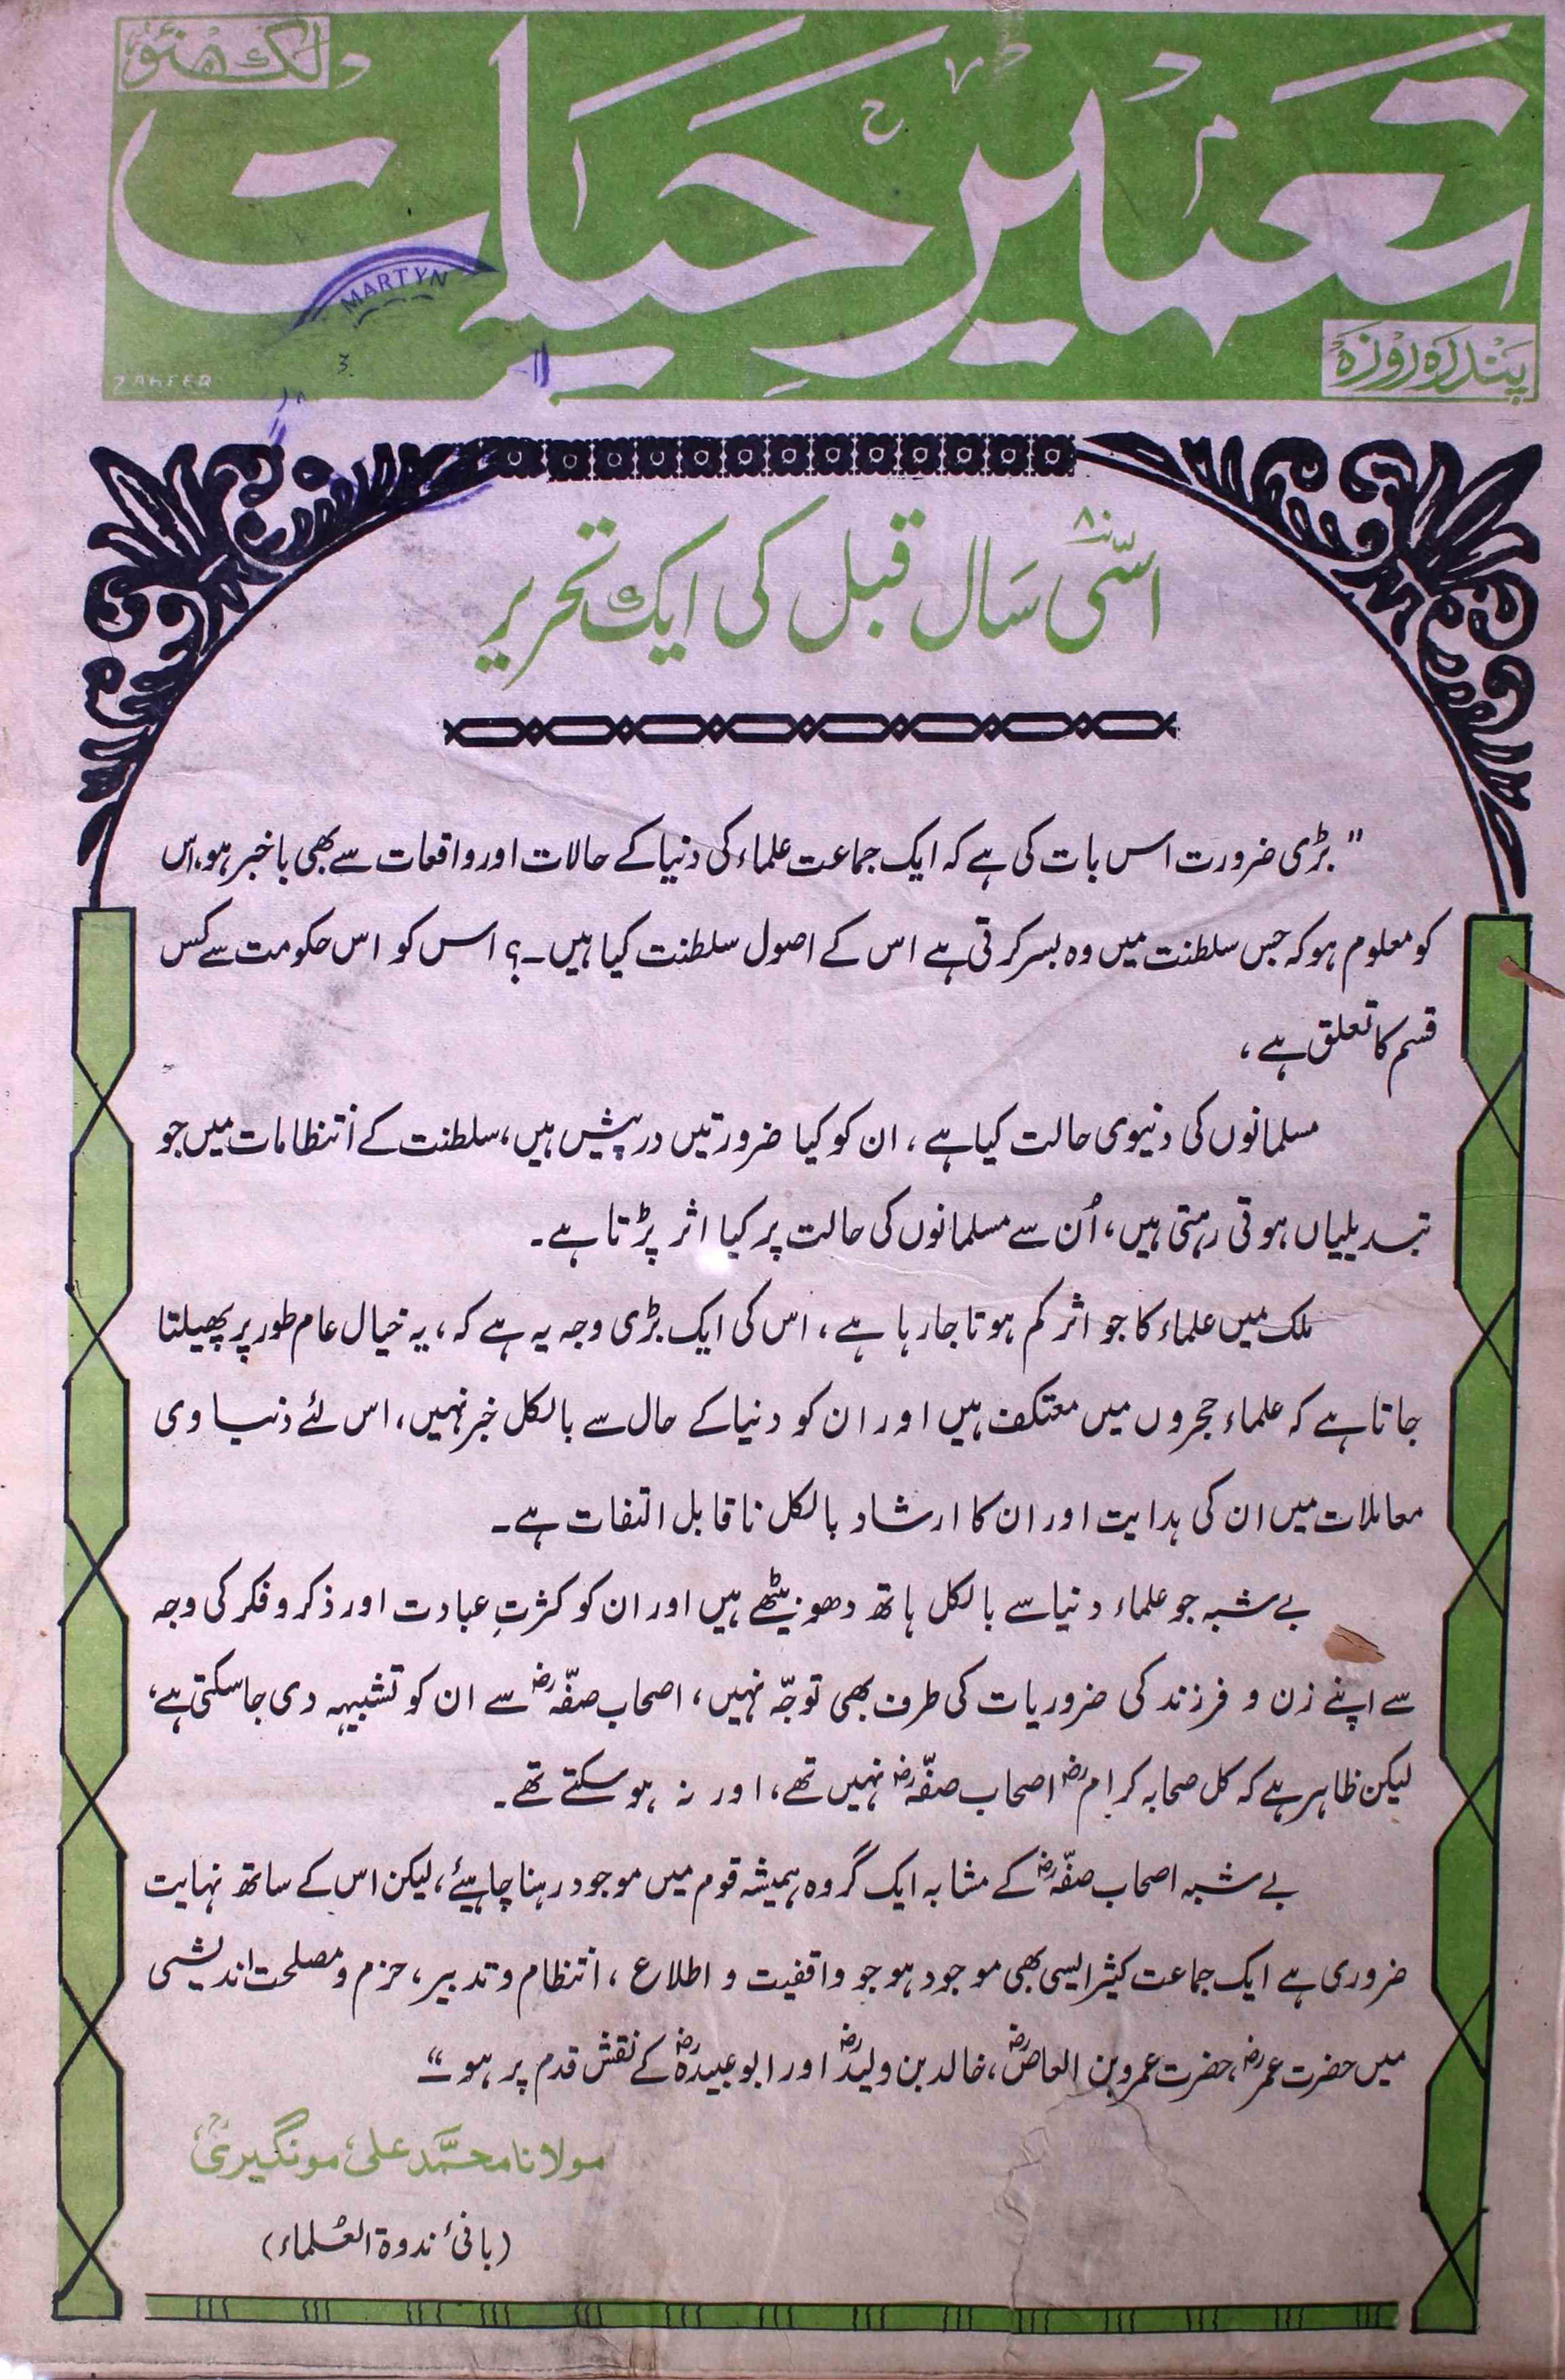 لکھنؤ
تعمیر حیات
پندرہ روزہ
MARTYN
ZAHEER
۸۰
اسّی سال قبل کی ایک تحریر
"بڑی ضرورت اس بات کی ہے کہ ایک جماعت علماء کی دنیا کے حالات اور واقعات سے بھی باخبر ہو، اس
کو معلوم ہو کہ جس سلطنت میں وہ بسر کرتی ہے اس کے اصول سلطنت کیا ہیں۔؟ اس کو اس حکومت سے کس
قسم کا تعلق ہے،
مسلمانوں کی دنیوی حالت کیا ہے، ان کو کیا ضرورتیں درپیش ہیں، سلطنت کے انتظامات میں جو
تبدیلیاں ہوتی رہتی ہیں، اُن سے مسلمانوں کی حالت پر کیا اثر پڑتا ہے۔
ملک میں علماء کا جو اثر کم ہوتا جارہا ہے، اس کی ایک بڑی وجہ یہ ہے کہ، یہ خیال عام طور پر پھیلتا
جاتا ہے کہ علماء حجروں میں معتکف ہیں اور ان کو دنیا کے حال سے بالکل خبر نہیں، اس لئے دنیاوی
معاملات میں ان کی ہدایت اور ان کا ارشاد بالکل ناقابل التفات ہے۔
بے شبہ جو علماء دنیا سے بالکل ہاتھ دھو بیٹھے ہیں اور ان کو کثرتِ عبادت اور ذکر و فکر کی وجہ
سے اپنے زن و فرزند کی ضروریات کی طرف بھی توجّہ نہیں، اصحاب صفّہؓ سے ان کو تشبیہہ دی جاسکتی ہے،
لیکن ظاہر ہے کہ کل صحابہ کرامؓ اصحاب صفّہؓ نہیں تھے، اور نہ ہو سکتے تھے۔
بے شبہ اصحاب صفّہؓ کے مشابہ ایک گروہ ہمیشہ قوم میں موجود رہنا چاہیئے، لیکن اس کے ساتھ نہایت
ضروری ہے ایک جماعت کثیر ایسی بھی موجود ہو جو واقفیت و اطلاع، انتظام و تدبیر، حزم و مصلحت اندیشی
میں حضرت عمرؓ، حضرت عمرو بن العاصؓ، خالد بن ولیدؓ اور ابو عبیدہؓ کے نقش قدم پر ہو"
مولانا محمّد علی مونگیریؒ
(بانیٔ ندوۃ العُلماء)